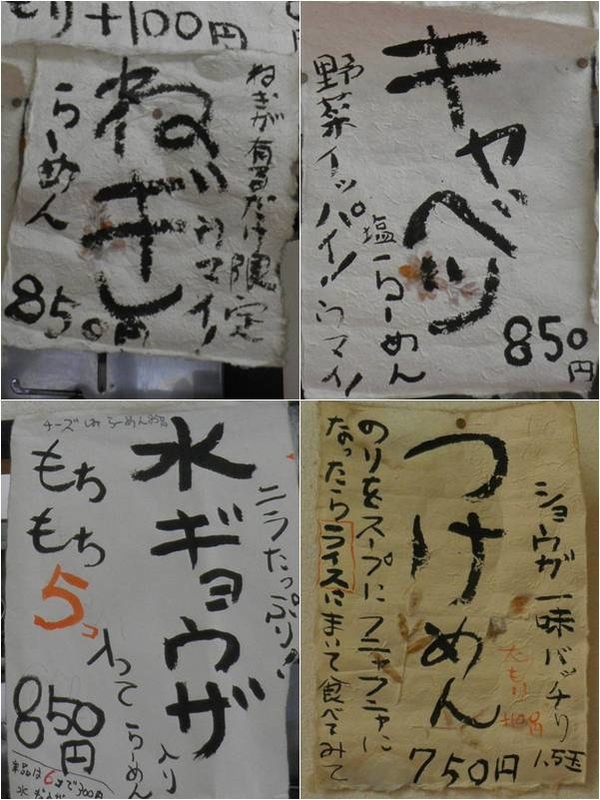 り+100円
ねぎが有るだけ限定
ねぎ
ウマイ!
らーめん
850円
キャベツ
塩らーめん
野菜イッパイ!ウマイ!
850円
ニラたっぷり!
水ギョウザ
入り
らーめん
もち
もち
5コ
入って
850円
単品は6コで300円
水
つけめん
ショウガ一味バッチリ
大もり
1.5玉
のりをスープにフニャフニャに
なったらライスにまいて食べてみて
750円